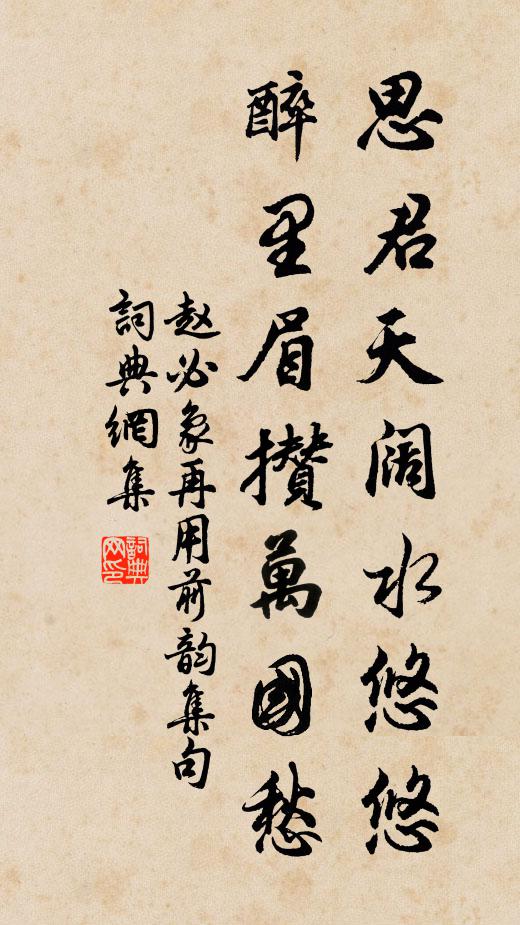 思君天阔水悠悠
醉里眉攒萬國愁
赵必象再用前韵集句
詞典網集
詞典网印